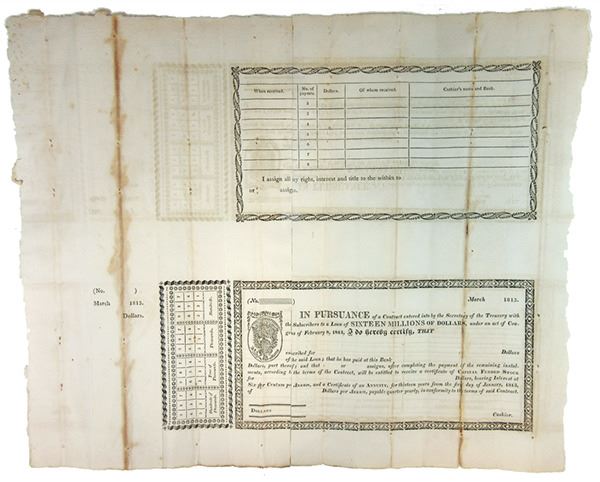 When received. No. of payment. Dollars. Of whom received. Cashier's name and Bank.
1
2
3
4
5
6
7
8
I assign all my right, interest and title to the within to
or assigns.
(No. )
March 1813.
Dollars.
(No. ) March 1813.
IN PURSUANCE of a Contract entered into by the Secretary of the Treasury with
the Subscribers to a Loan of SIXTEEN MILLIONS OF DOLLARS, under an act of Con-
gress of February 8, 1813, I do hereby certify, THAT
subscribed for Dollars
of the said Loan; that he has paid at this Bank
Dollars, part thereof; and that or assigns, after completing the payment of the remaining instal-
ments, according to the terms of the Contract, will be entitled to receive a certificate of CAPITAL FUNDED STOCK
for Dollars, bearing Interest at
Six per CENTUM per ANNUM, and a Certificate of an ANNUITY, for thirteen years from the first day of January, 1813,
of Dollars per ANNUM, payable quarter yearly, in conformity to the terms of said Contract.
DOLLARS
Cashier.